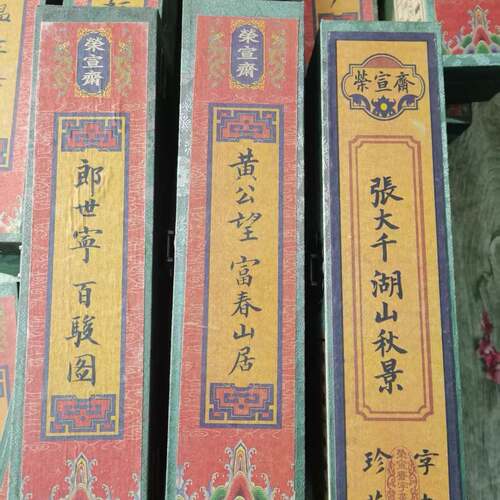 榮宣齋
郎世寧 百駿图
榮宣齋
黃公望 富春山居
榮宣齋
張大千 湖山秋景
字
珍